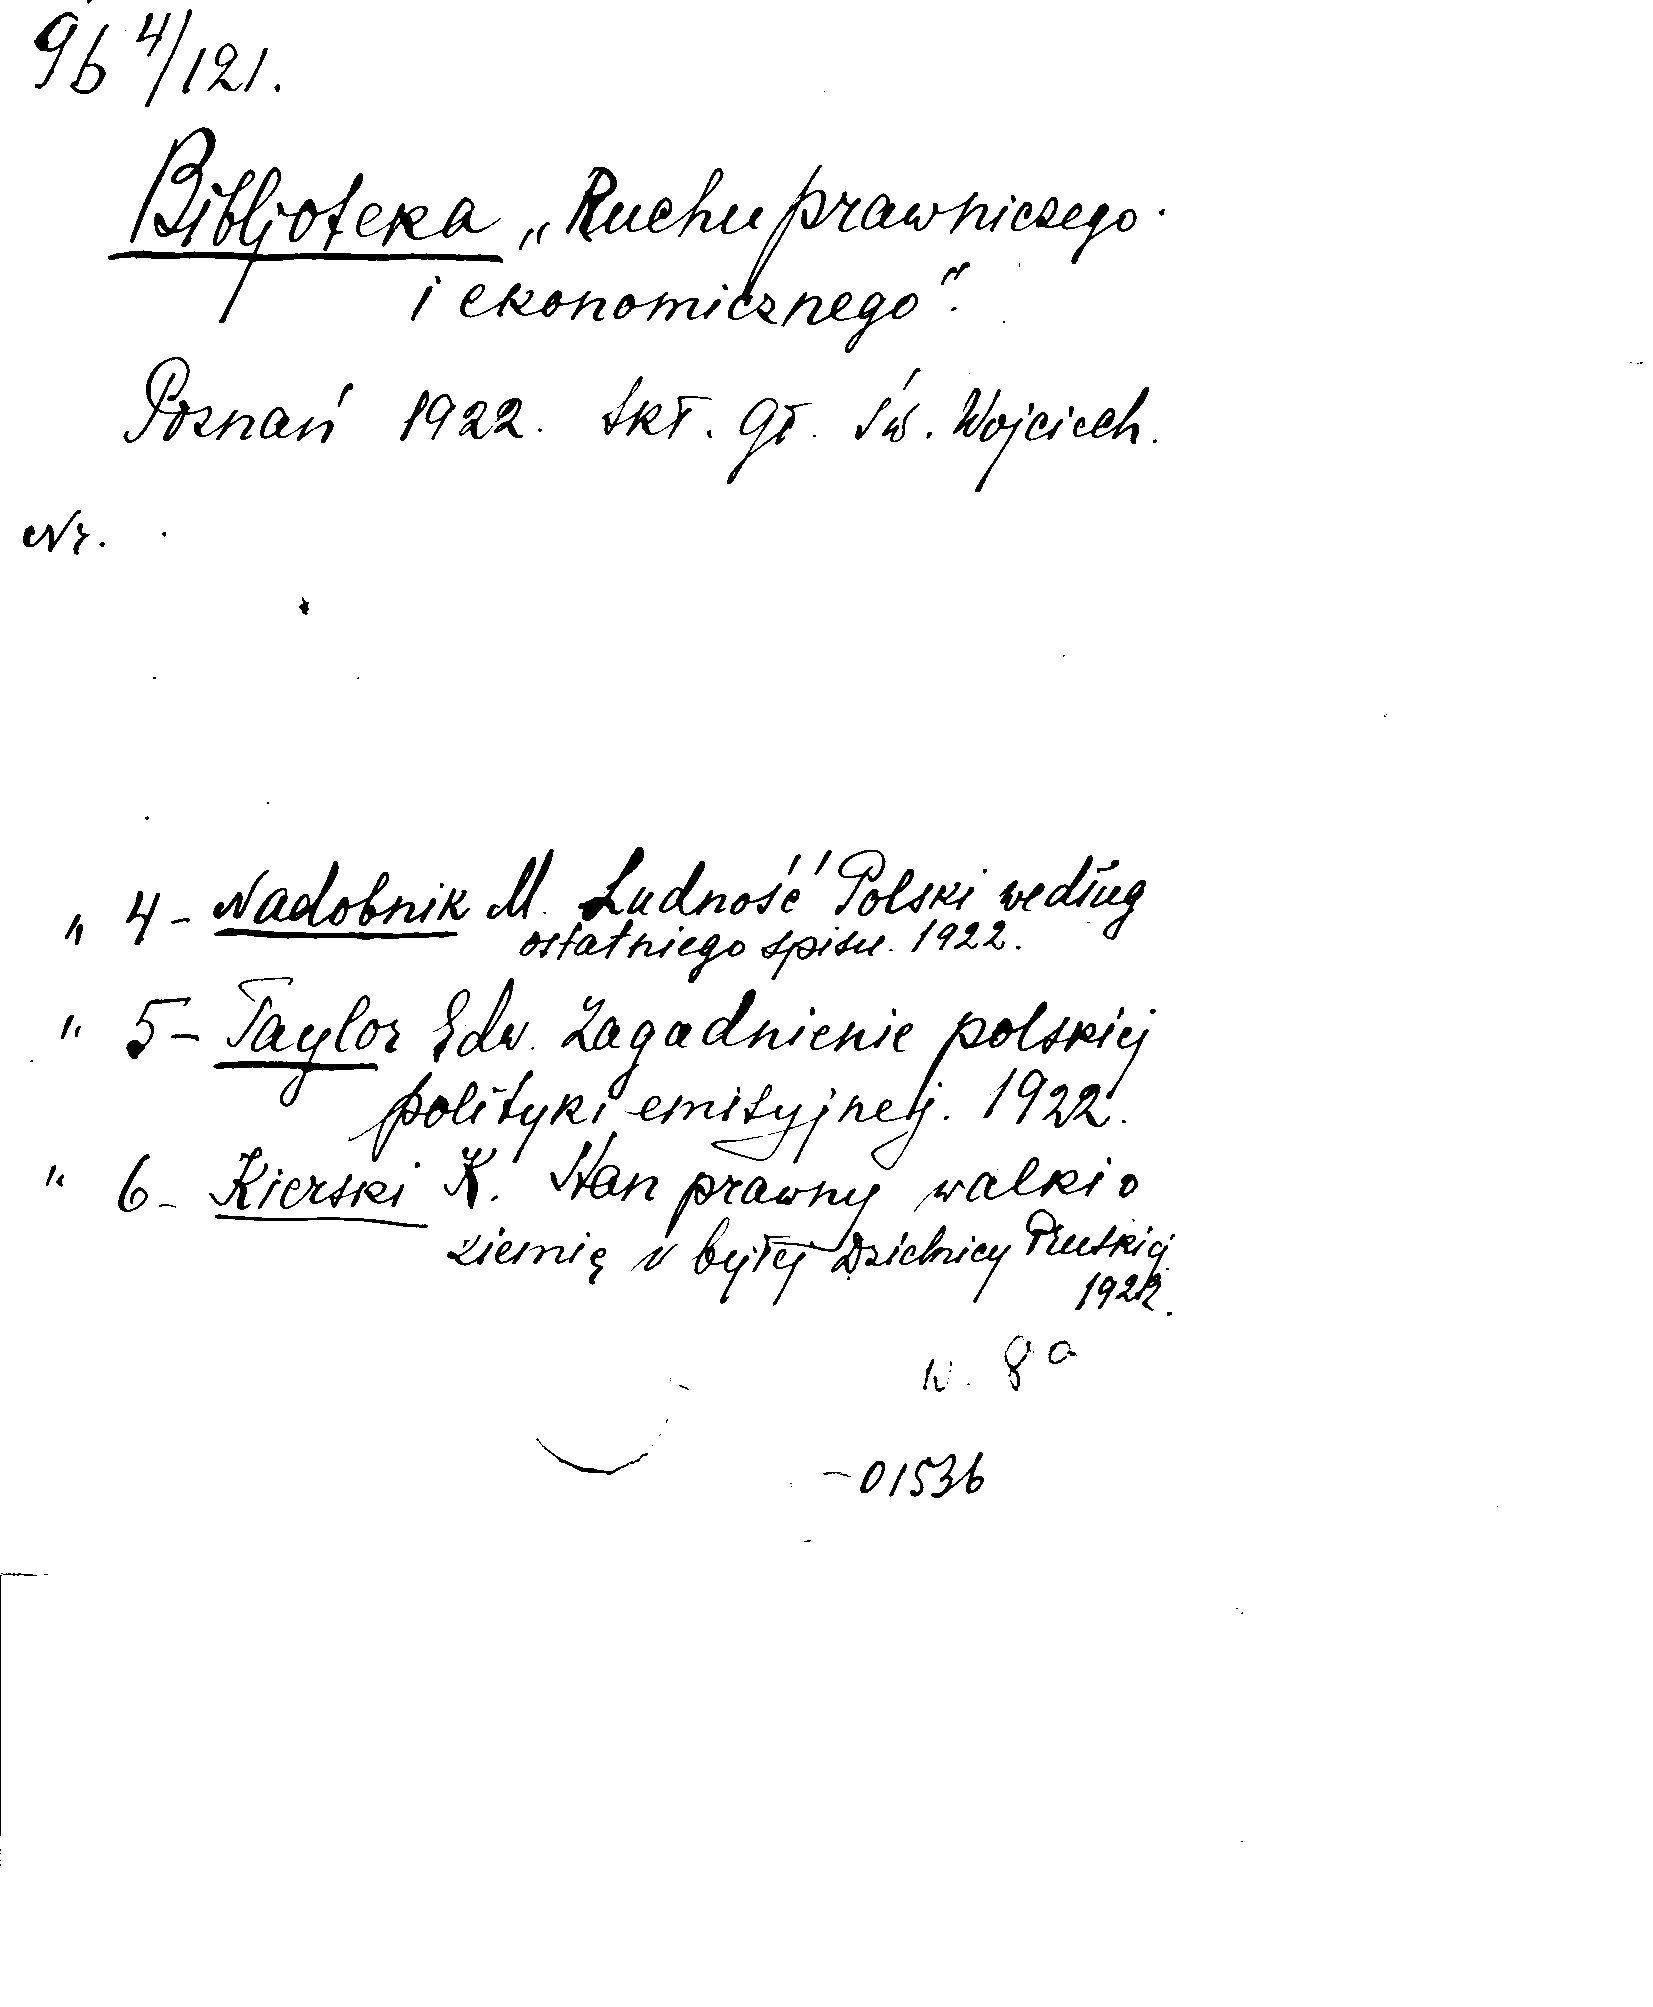 9b 4/121.
Bibljoteka „Ruchu prawniczego
i ekonomicznego".
Poznań 1922. Skł. Gł. Św. Wojciech.
Nr.
" 4 - Nadobnik M. Ludność Polski według
ostatniego spisu. 1922.
" 5 - Taylor Edw. Zagadnienie polskiej
polityki emisyjnej. 1922.
" 6 - Kierski K. Stan prawny walki o
ziemię w byłej Dzielnicy Pruskiej
1922.
w. 8°
-01536